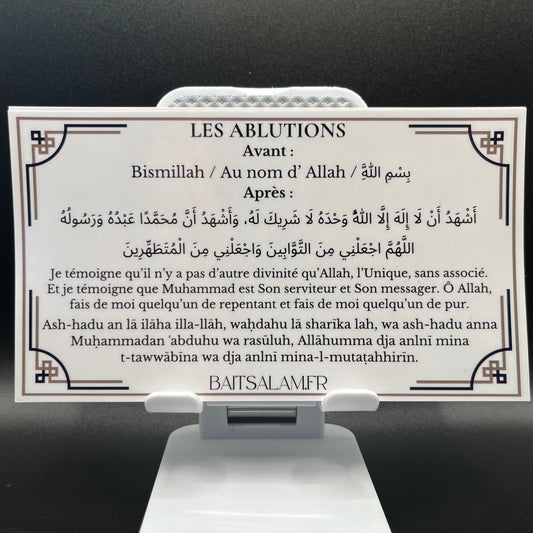 LES ABLUTIONS
Avant :
Bismillah / Au nom d' Allah / بِسْمِ اللَّهِ
Après :
أَشْهَدُ أَنْ لَا إِلَهَ إِلَّا اللَّهُ وَحْدَهُ لَا شَرِيكَ لَهُ، وَأَشْهَدُ أَنَّ مُحَمَّدًا عَبْدُهُ وَرَسُولُهُ
اللَّهُمَّ اجْعَلْنِي مِنَ التَّوَّابِينَ وَاجْعَلْنِي مِنَ الْمُتَطَهِّرِينَ
Je témoigne qu'il n'y a pas d'autre divinité qu'Allah, l'Unique, sans associé.
Et je témoigne que Muhammad est Son serviteur et Son messager. Ô Allah,
fais de moi quelqu'un de repentant et fais de moi quelqu'un de pur.
Ash-hadu an lā ilāha illa-llāh, waḥdahu lā sharīka lah, wa ash-hadu anna
Muḥammadan 'abduhu wa rasūluh, Allāhumma dja anlnī mina
t-tawwābīna wa dja anlnī mina-l-mutaṭahhirīn.
BAITSALAM.FR